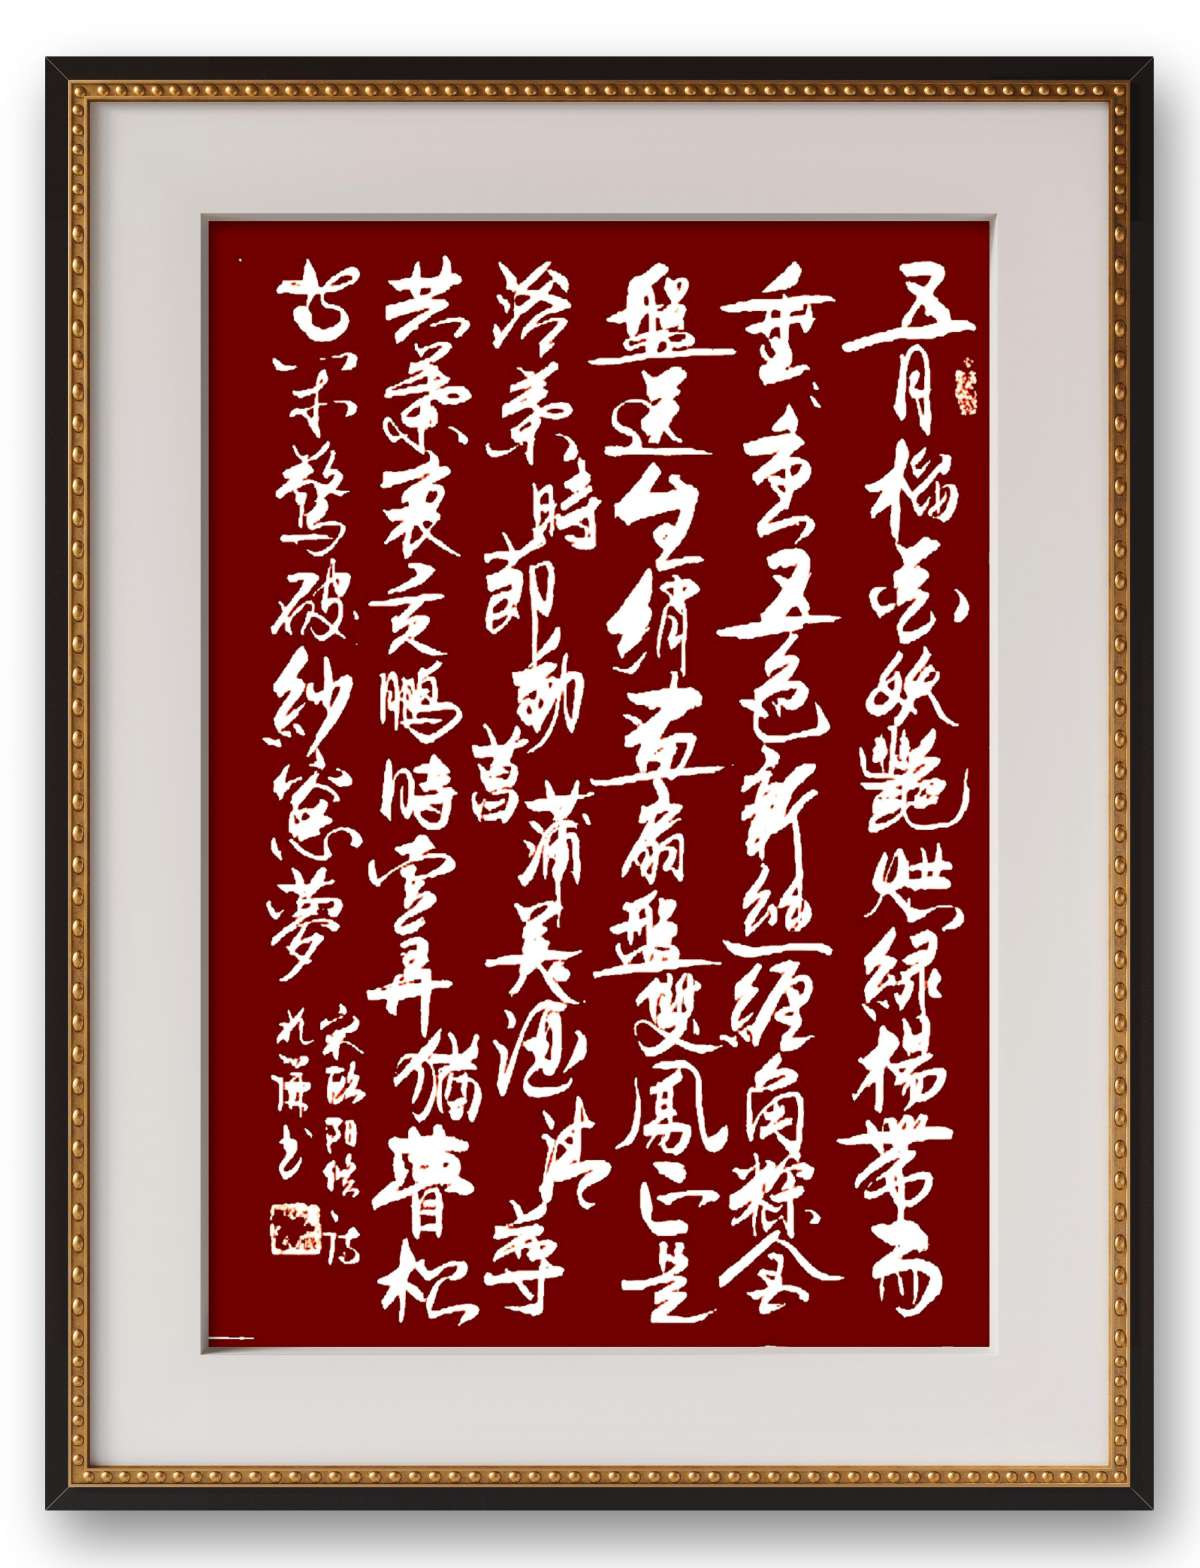 五月榴花妖艷烘綠楊帶雨
垂垂重五色新絲纏角粽金
盤送生綃畫扇盤雙鳳正是
浴蘭時節動菖蒲美酒清尊
共葉裏黄鸝時一弄猶瞢松
等閒驚破紗窗夢
宋歐陽修詩